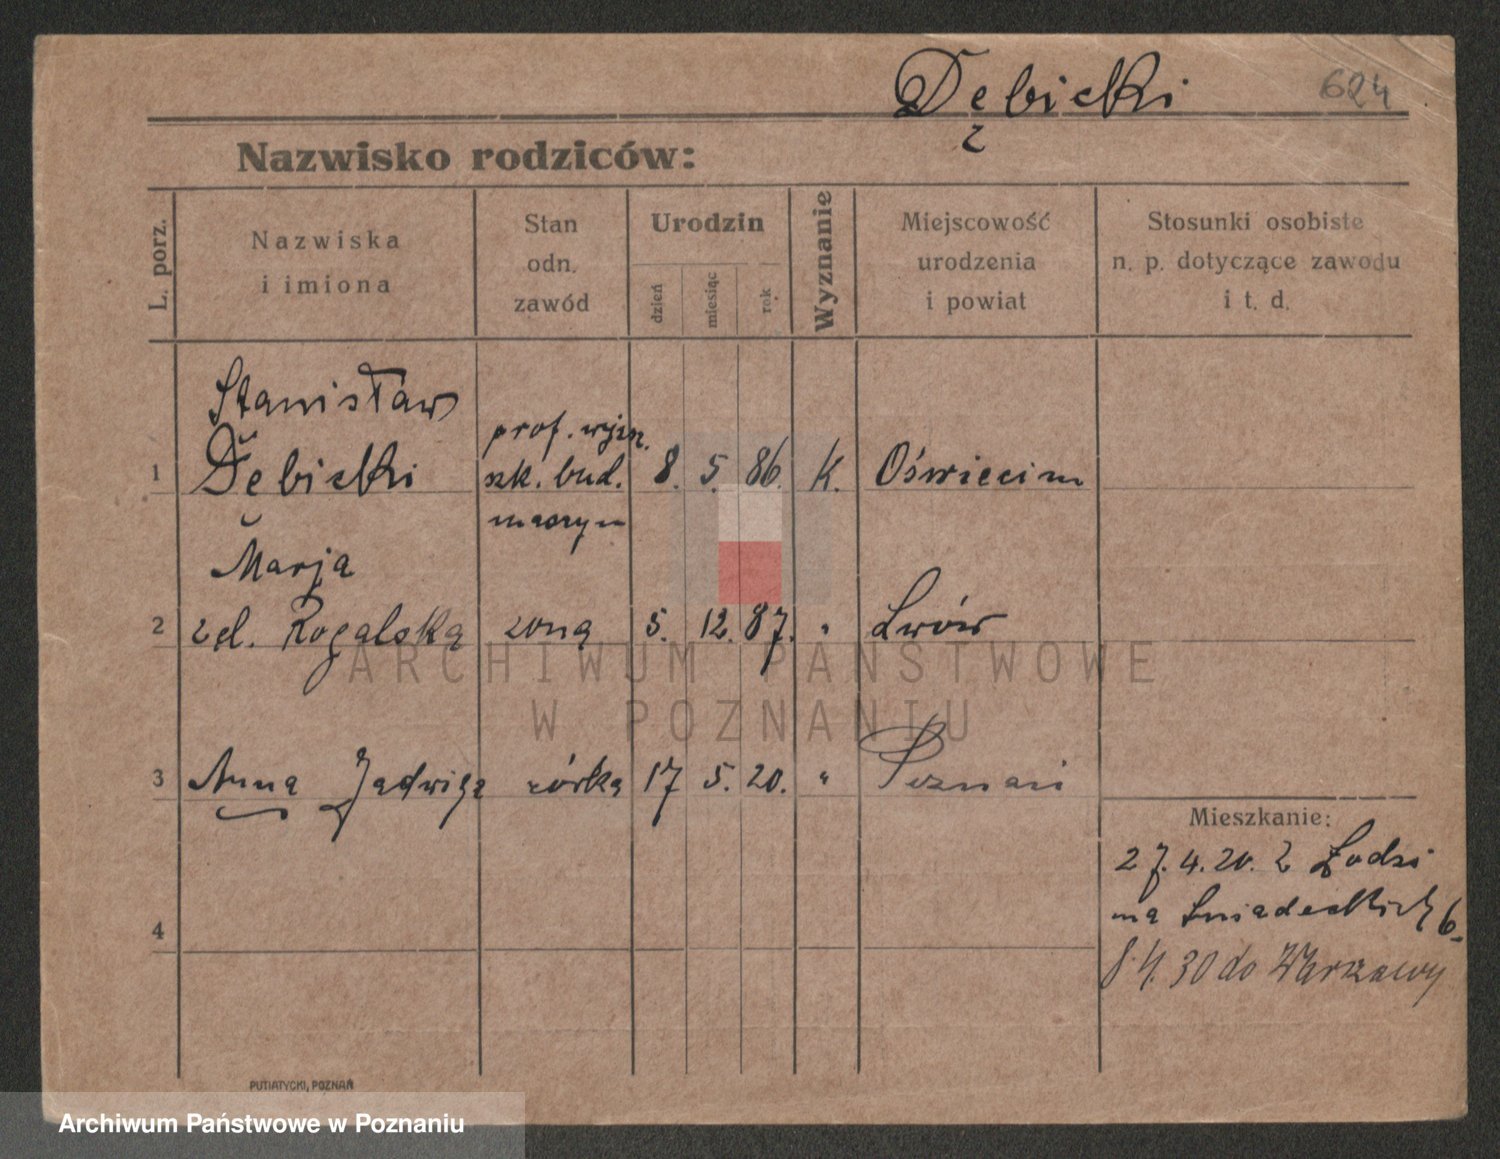 Dębicki 624
Nazwisko rodziców:
L. porz.
Nazwiska
i imiona
Stan
odn.
zawód
Urodzin
dzień
miesiąc
rok
Wyznanie
Miejscowość
urodzenia
i powiat
Stosunki osobiste
n. p. dotyczące zawodu
i t. d.
Stanisław
prof. wyższ.
1 Dębicki szk. bud. 8. 5. 86. K. Oświecim
maszyn
Marja
2 zd. Rogalska żona 5. 12. 87. " Lwów
ARCHIWUM PAŃSTWOWE
W POZNANIU
3 Anna Jadwiga córka 17 5. 20. " Poznań
Mieszkanie:
27.4.20. z Łodzi
na Śniadeckich 6.
4
8 4. 30 do Warszawy
PUTIATYCKI, POZNAŃ
Archiwum Państwowe w Poznaniu